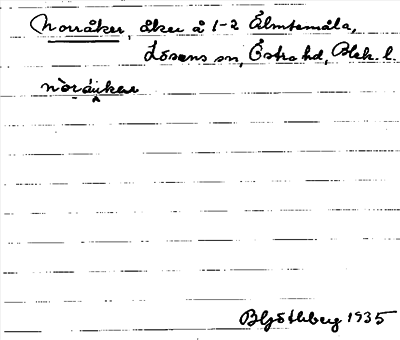 Norråker, åker å 1-2 Älmtamåla,
Lösens sn, Östra hd, Blek. l.
B Ljöthberg 1935